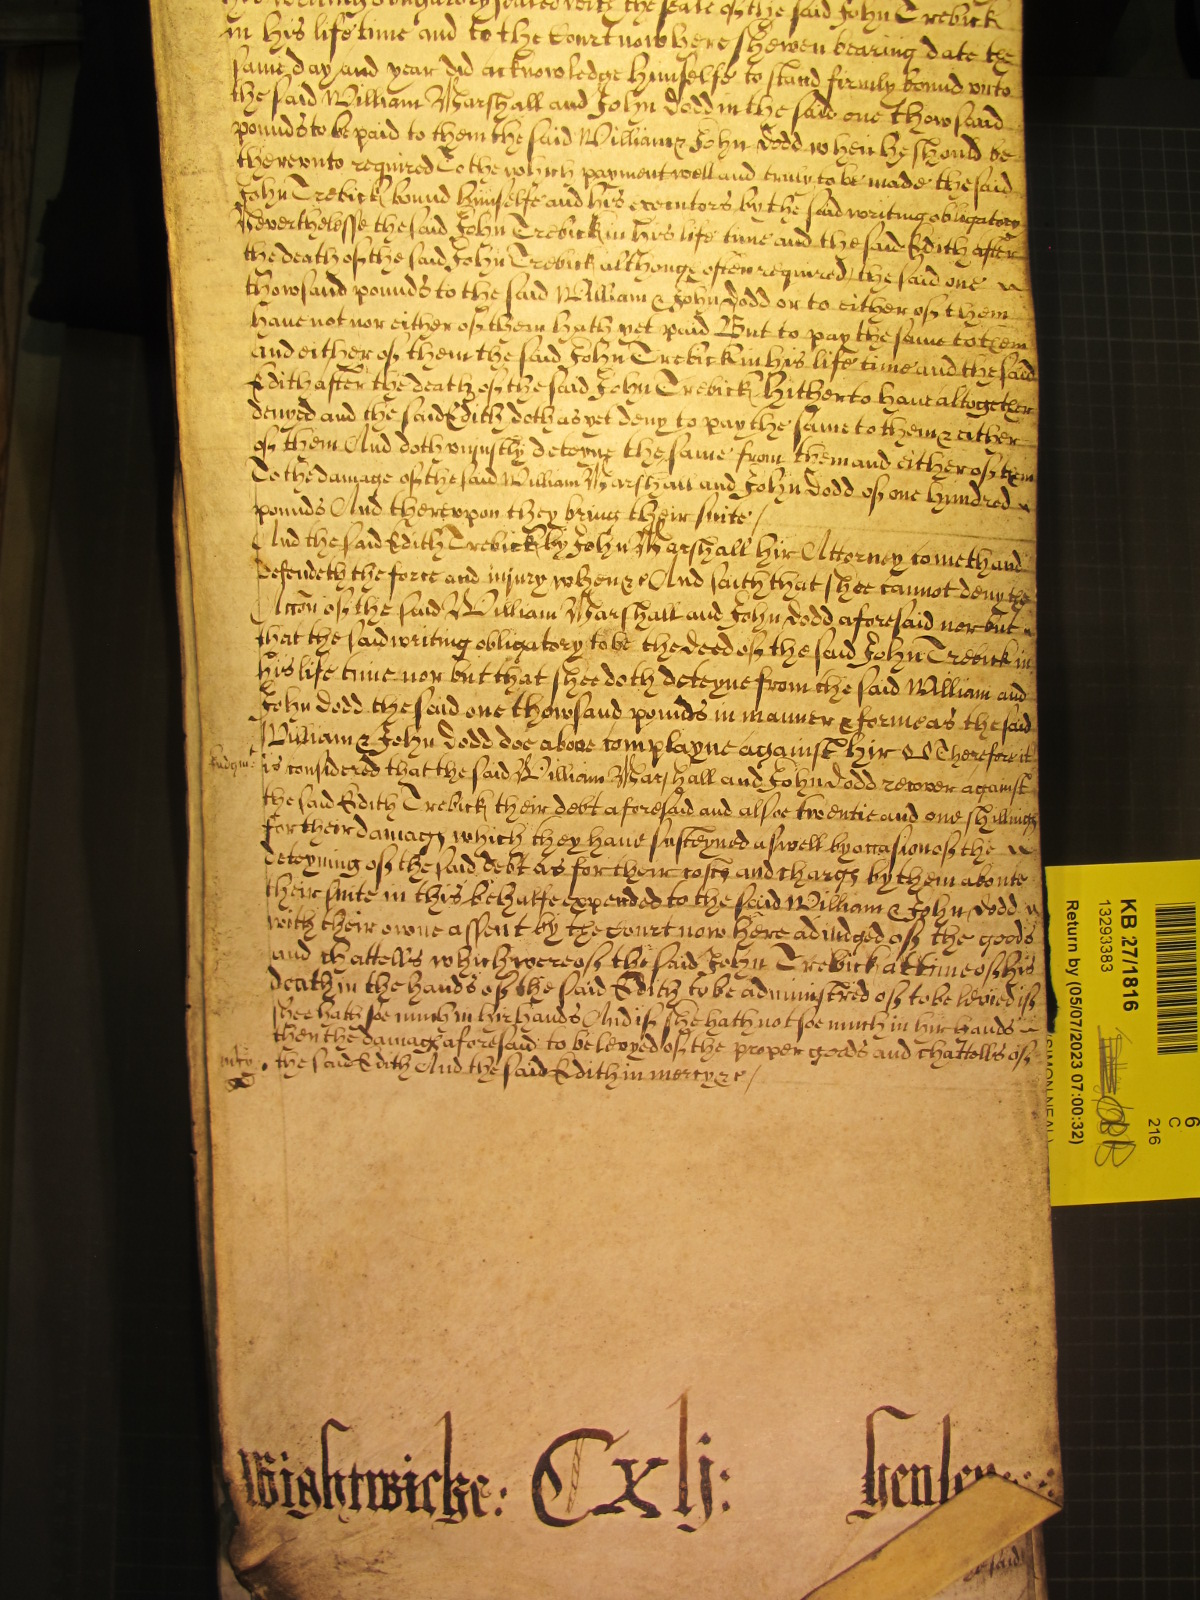 his writing obligatory sealed with the seale of the said John Trebick
in his life time and to the Court now here shewen bearing date the
same day and year did acknowledge himselfe to stand firmly bound unto
the said William Marshall and John Dodd in the said one thowsand
pounds to be paid to them the said William & John Dodd when he should be
thereunto required To the which payment well and truly to be made the said
John Trebick bound himselfe and his executors by the said writing obligatory
Neverthelesse the said John Trebick in his life time and the said Edith after
the death of the said John Trebick althoughe often required the said one
thowsand pounds to the said William & John Dodd or to either of them
have not nor either of them hath yet paid But to pay the same to them
and either of them the said John Trebick in his life time and the said
Edith after the death of the said John Trebick hitherto have altogether
denyed and the said Edith doth as yet deny to pay the same to them & either
of them And doth uniustly deteyne the same from them and either of them
To the damage of the said William Marshall and John Dodd of one hundred
pounds And thereupon they bring their suite /
And the said Edith Trebick by John Marshall hir Attorney cometh and
defendeth the force and injury when &c And saith that shee cannot deny the
Accon of the said William Marshall and John Dodd aforesaid nor but
that the said writing obligatory to be the deed of the said John Trebick in
his life time nor but that shee doth deteyne from the said William and
John Dodd the said one thowsand pounds in manner & forme as the said
William & John Dodd doe above complayne against hir Therefore it
Judgmt is considered that the said William Marshall and John Dodd recover against
the said Edith Trebick their debt aforesaid and alsoe twentie and one shillings
for their damags which they have susteyned aswell by occasion of the
deteyning of the said debt as for their costs and chargs by them aboute
their suite in this behalfe expended to the said William & John Dodd
with their owne assent by the Court now here adiudged of the goods
and chattells which were of the said John Trebick at time of his
death in the hands of the said Edith to be administred of to be levied if
shee hath soe much in hir hands And if she hath not soe much in hir hands
then the damags aforesaid to be levyed of the proper goods and chattells of
the said Edith And the said Edith in mercy &c /
Wightwicke: Cxlj: Henley
said
KB 27/1816
13293383
Return by (05/07/2023 07:00:32)
(SIMON NEAL)
6
C
216